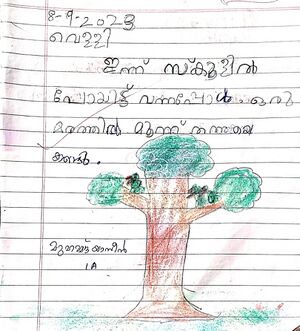 8-9-2023
വെള്ളി
ഇന്ന് സ്കൂളിൽ
പോയിട്ട് വന്നപ്പോൾ ഒരു
മരത്തിൽ മൂന്ന് തത്തയെ
കണ്ടു.
മുഹമ്മദ് യാസീൻ
1A